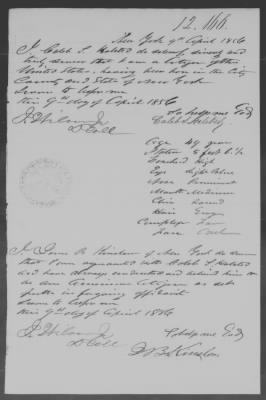 12.
New York 9th April 1856
I Caleb S. Halsted do solemnly, sincerely and
truly swear that I am a Citizen of the
United States, having been born in the City
County and State of New York
Sworn to before me
this 9th day of April 1856
So help me God
Caleb S. Halsted
Age 49 years
Stature 5 feet 8 1/2
Forehead High
Eyes Light Blue
Nose Prominent
Mouth Medium
Chin Round
Hair Gray
Complexion Fair
Face Oval
I, James B. Kinslow of New York do swear
that I am acquainted with Caleb S. Halsted
and have always considered and believed him to
be an American Citizen as set
forth in foregoing affidavit
Sworn to before me
this 9th day of April 1856
So help me God